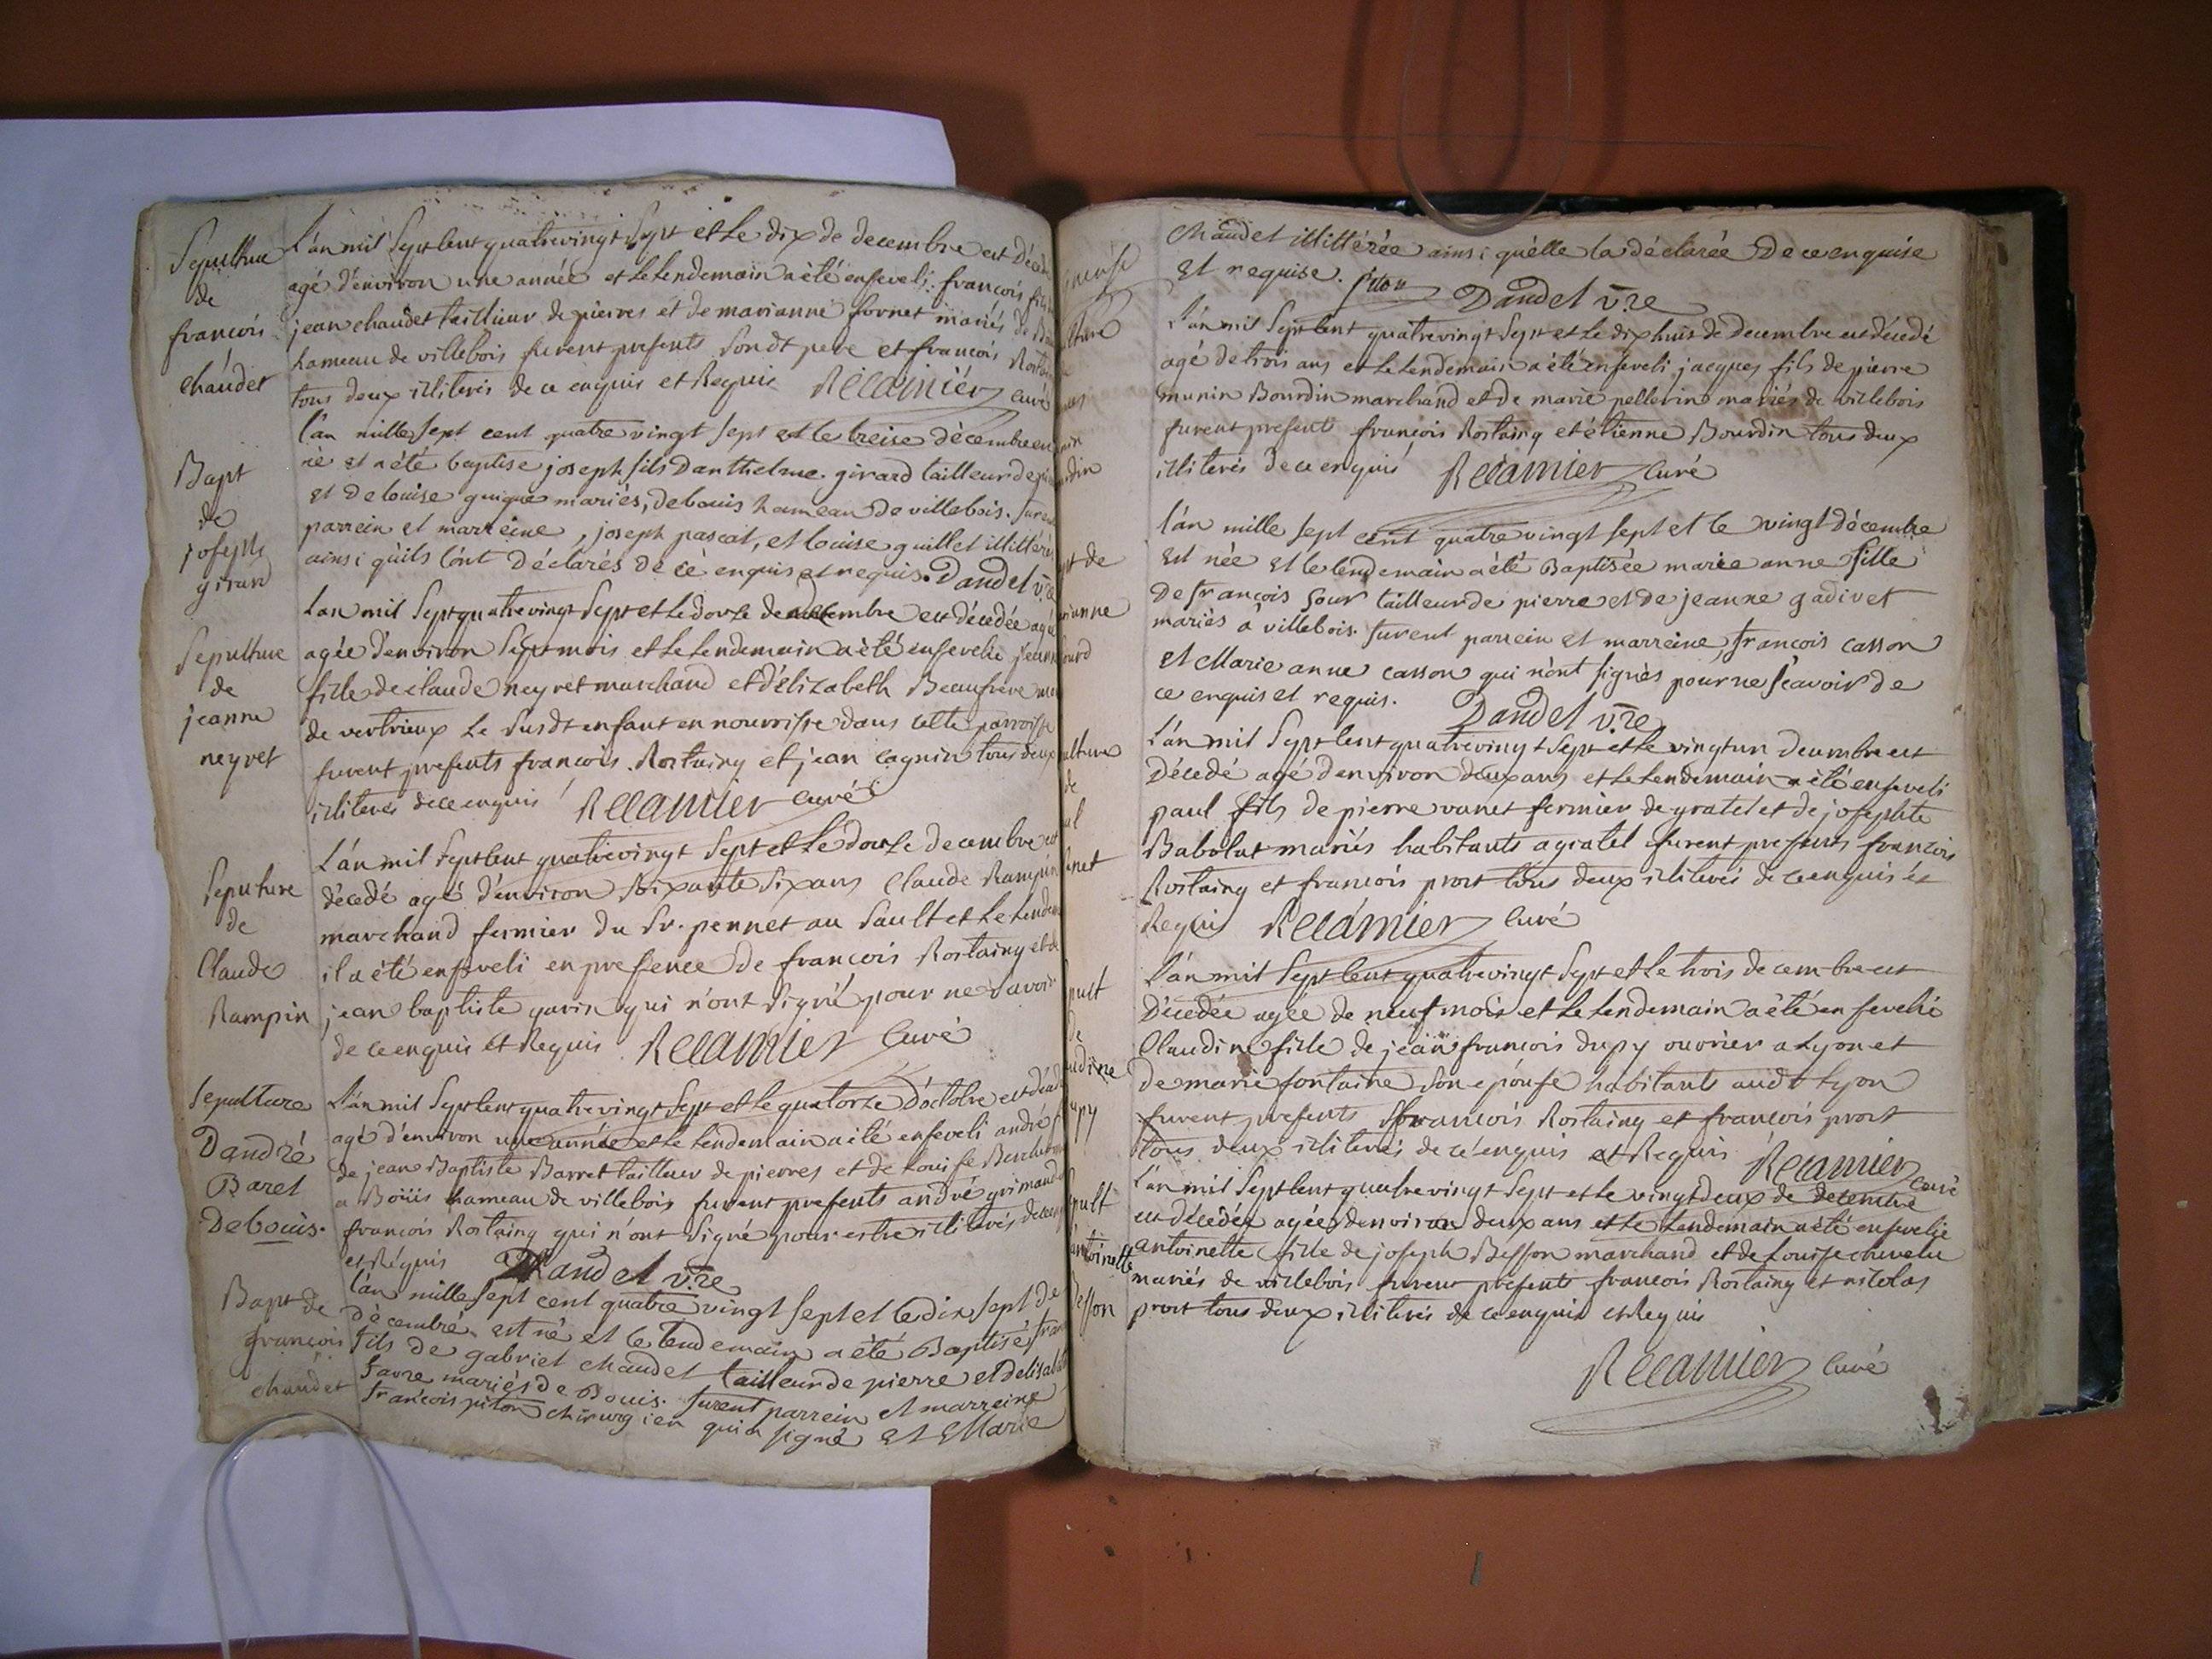 Sepulture
de
francois
chaudet
L'an mil Sept Cent quatrevingt Sept et le dix de decembre est Décédé
agé d'environ une année et le lendemain a été enseveli francois fils
jean chaudet taillieur de pierres et de marianne fornet mariés de
hameau de villebois furent presents Sondt pere et francois Rostaing
tous deux illiterés de ce enquis et Requis Récamiér Curé
Bapt
de
joseph
girard
L'an mille sept cent quatre vingt sept et le treise décembre est
né et a été baptisé joseph fils Danthelme girard tailleur de
et de louise guigue mariés, de bouis hameau de villebois. furent
parrein et marreine, joseph pascal, et louise guillet illittérés
ainsi qu'ils l'ont déclarés de cé enquis et requis. Dandel v.re
Sepulture
de
jeanne
neyret
L'an mil Sept quatrevingt Sept et le douse decembre est décédée agée
agée d'environ Sept mois et le lendemain a été ensevelie jeanne
fille de claude neyret marchand et d'élizabeth Beaufrere
de vertrieux le Susdt enfant en nourrisse dans cette parroisse
furent presents francois Rostaing et jean cagnin tous deux
illiterés de ce enquis Recamier Curé
Sepulture
de
Claude
Rampin
L'an mil Sept Cent quatrevingt Sept et le douse decembre est
décedé agé d'environ Soixante Six ans Claude Rampin
marchand fermier du Sr. pennet au Sault et le lendemain
il a été enseveli en presence de francois Rostaing et de
jean baptiste gavin qui n'ont Signé pour ne Savoir
de ce enquis et Requis Recamier Curé
Sepulture
D'andré
Baret
De bouis.
L'an mil Sept Cent quatrevingt Sept et le quatorze D'octobre est décédé
agé d'environ une année et le lendemain a été enseveli andré
de jean Baptiste Barret tailleur de pierres et de Louise
a Boüis hameau de villebois furent presents andré grimaud
francois Rostaing qui n'ont Signé pour estre illiterés de ce enquis
et Réquis Dandel v.re
Bapt de
francois
chaudet
L'an mille sept cent quatre vingt sept et le dix sept de
décembre est né et le lendemain a été Baptisé
fils de gabriel chaudet tailleur de pierre et
favre mariés de Bouis. furent parrein et marreine
francois piton chirurgien qui a signé et Marie
chaudet illittérée ainsi quélle la déclarée De ce enquise
et requise. piton Dandel v.re
L'an mil Sept Cent quatrevingt Sept et le dix huit de decembre est décedé
agé de trois ans et le lendemain a été enseveli jacques fils de pierre
munin Bourdin marchand et de marie pellerin mariés de villebois
furent presents françois Rostaing et étienne Bourdin tous deux
illiterés de ce enquis Récamier Curé
l'án mille sept cent quatre vingt sept et le vingt décembre
est née et le lendemain a été Baptisée marie anne fille
de françois sour tailleur de pierre et de jeanne gadivet
mariés a villebois. furent parrein et marreine, francois casson
et Marie anne casson qui n'ont signés pour ne sçavoir de
ce enquis et requis. Dandel v.re
L'an mil Sept Cent quatrevingt Sept et le vingt un decembre est
Décedé agé denviron deux ans et le lendemain a été enseveli
paul fils de pierre vanet fermier de gratel et de josephte
Babolat mariés habitants a gratel furent presents francois
Rostaing et francois prost tous deux illiterés de ce enquis et
Requis Recamier Curé
L'an mil Sept Cent quatrevingt Sept et le trois decembre est
Décedée agée de neuf mois et le lendemain a été ensevelie
Claudine fille de jean francois dupy ouvrier a Lyon et
de marie fontaine Son epouse habitants audt Lyon
furent presents francois Rostaing et francois prost
tous deux illiterés de ce enquis et Requis Récamier Curé
L'an mil Sept Cent quatrevingt Sept et le vingt deux de decembre
est décédée agée denviron deux ans et le lendemain a été ensevelie
antoinette fille de joseph Besson marchand et de Louise chevelu
mariés de villebois furent présents francois Rostaing et nicolas
prost tous deux illiterés de ce enquis et Requis
Récamier Curé